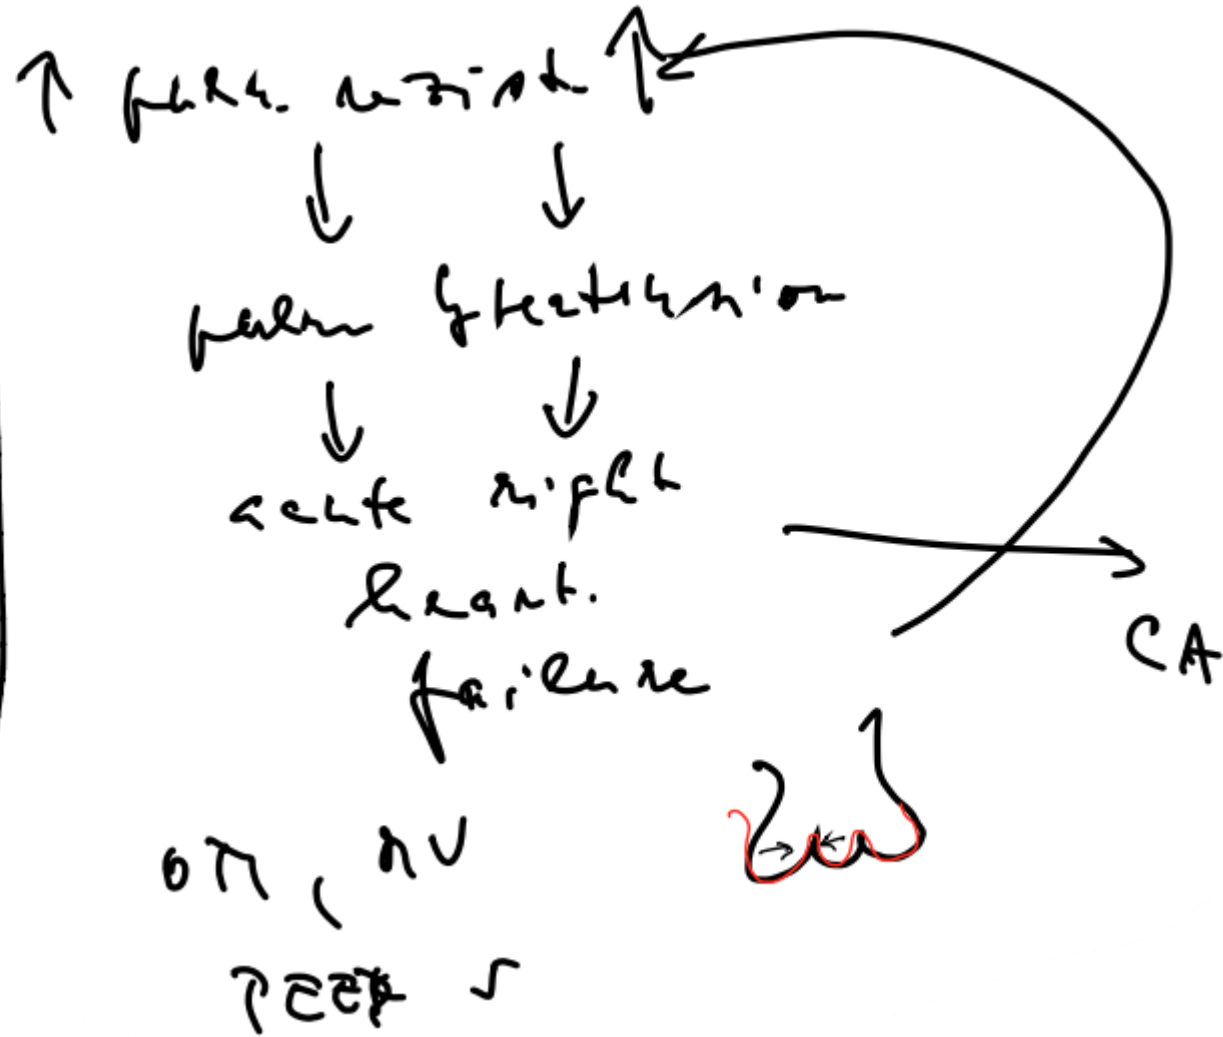 ↑ pulm. rezist. ↑
↓ ↓
pulm hypertension
↓ ↓
acute right
heart.
failure
→ CA
OTI, RV
PEEP 5